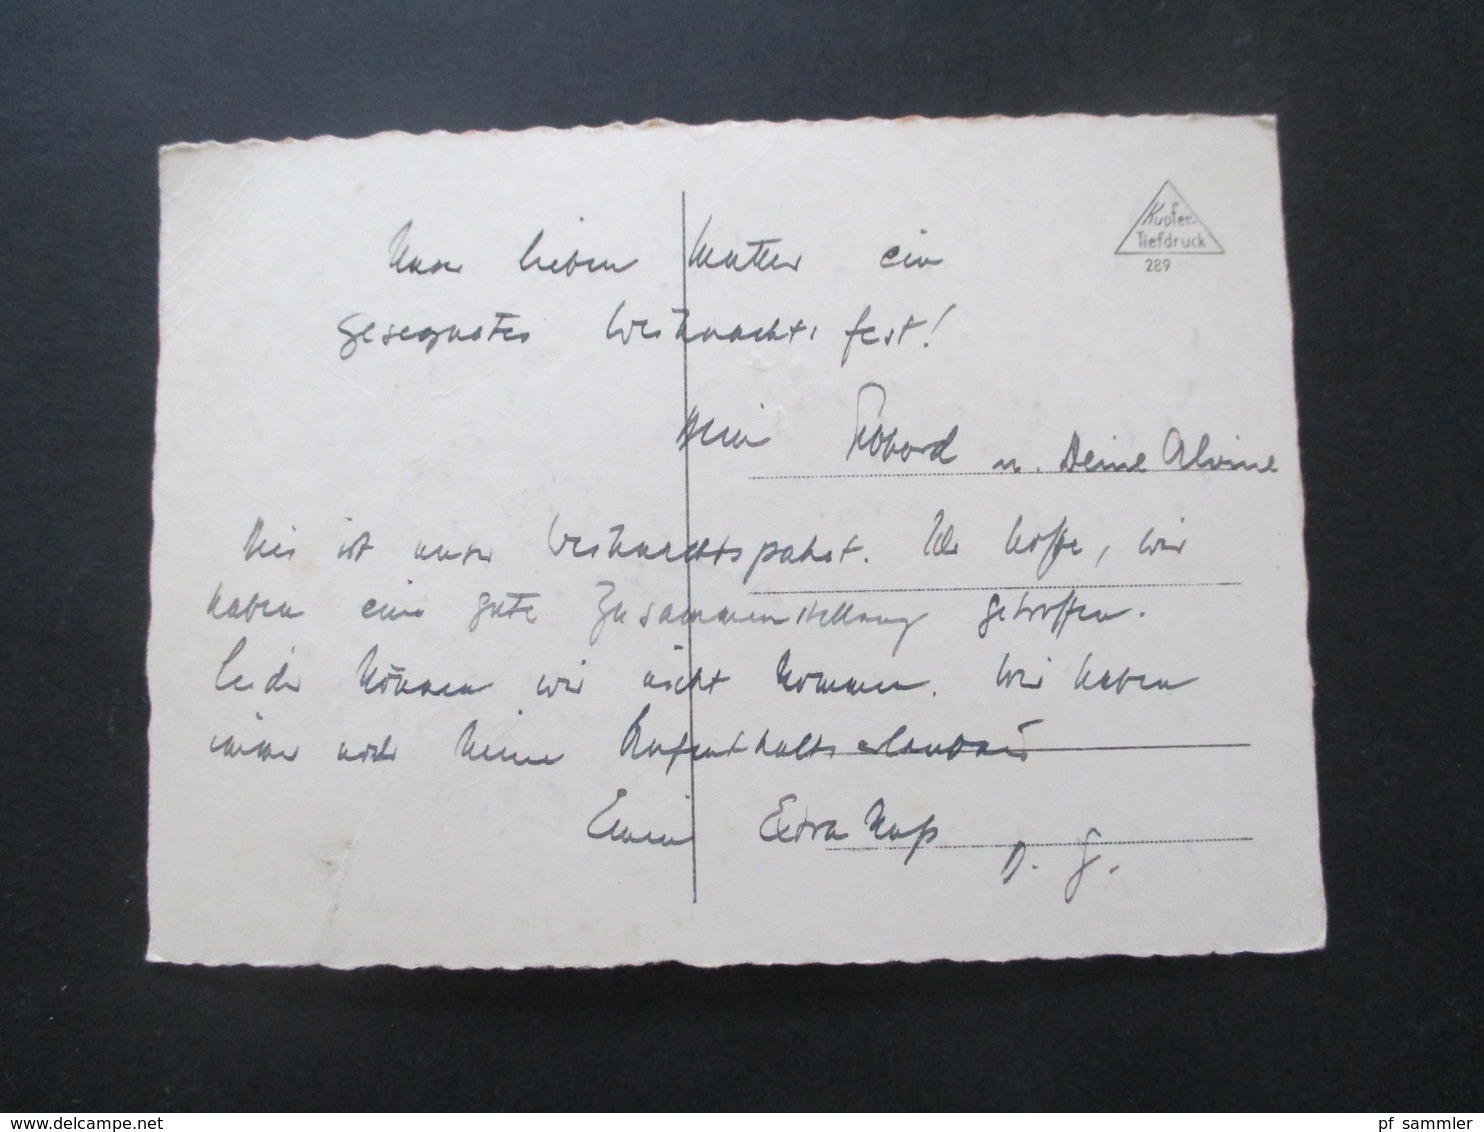 Kupfer-
Tiefdruck
289
lieben Mutter ein
gesegnetes Weihnachtsfest!
Dein u. Deine Alvine
ist unser Weihnachtspaket. Ich hoffe, wir
haben eine gute Zusammenstellung getroffen.
Leider können wir nicht kommen. Wir haben
immer noch keine Aufenthaltserlaubnis
Einen Extra Kuß
D. G.
www.delcampe.net
pf_sammler